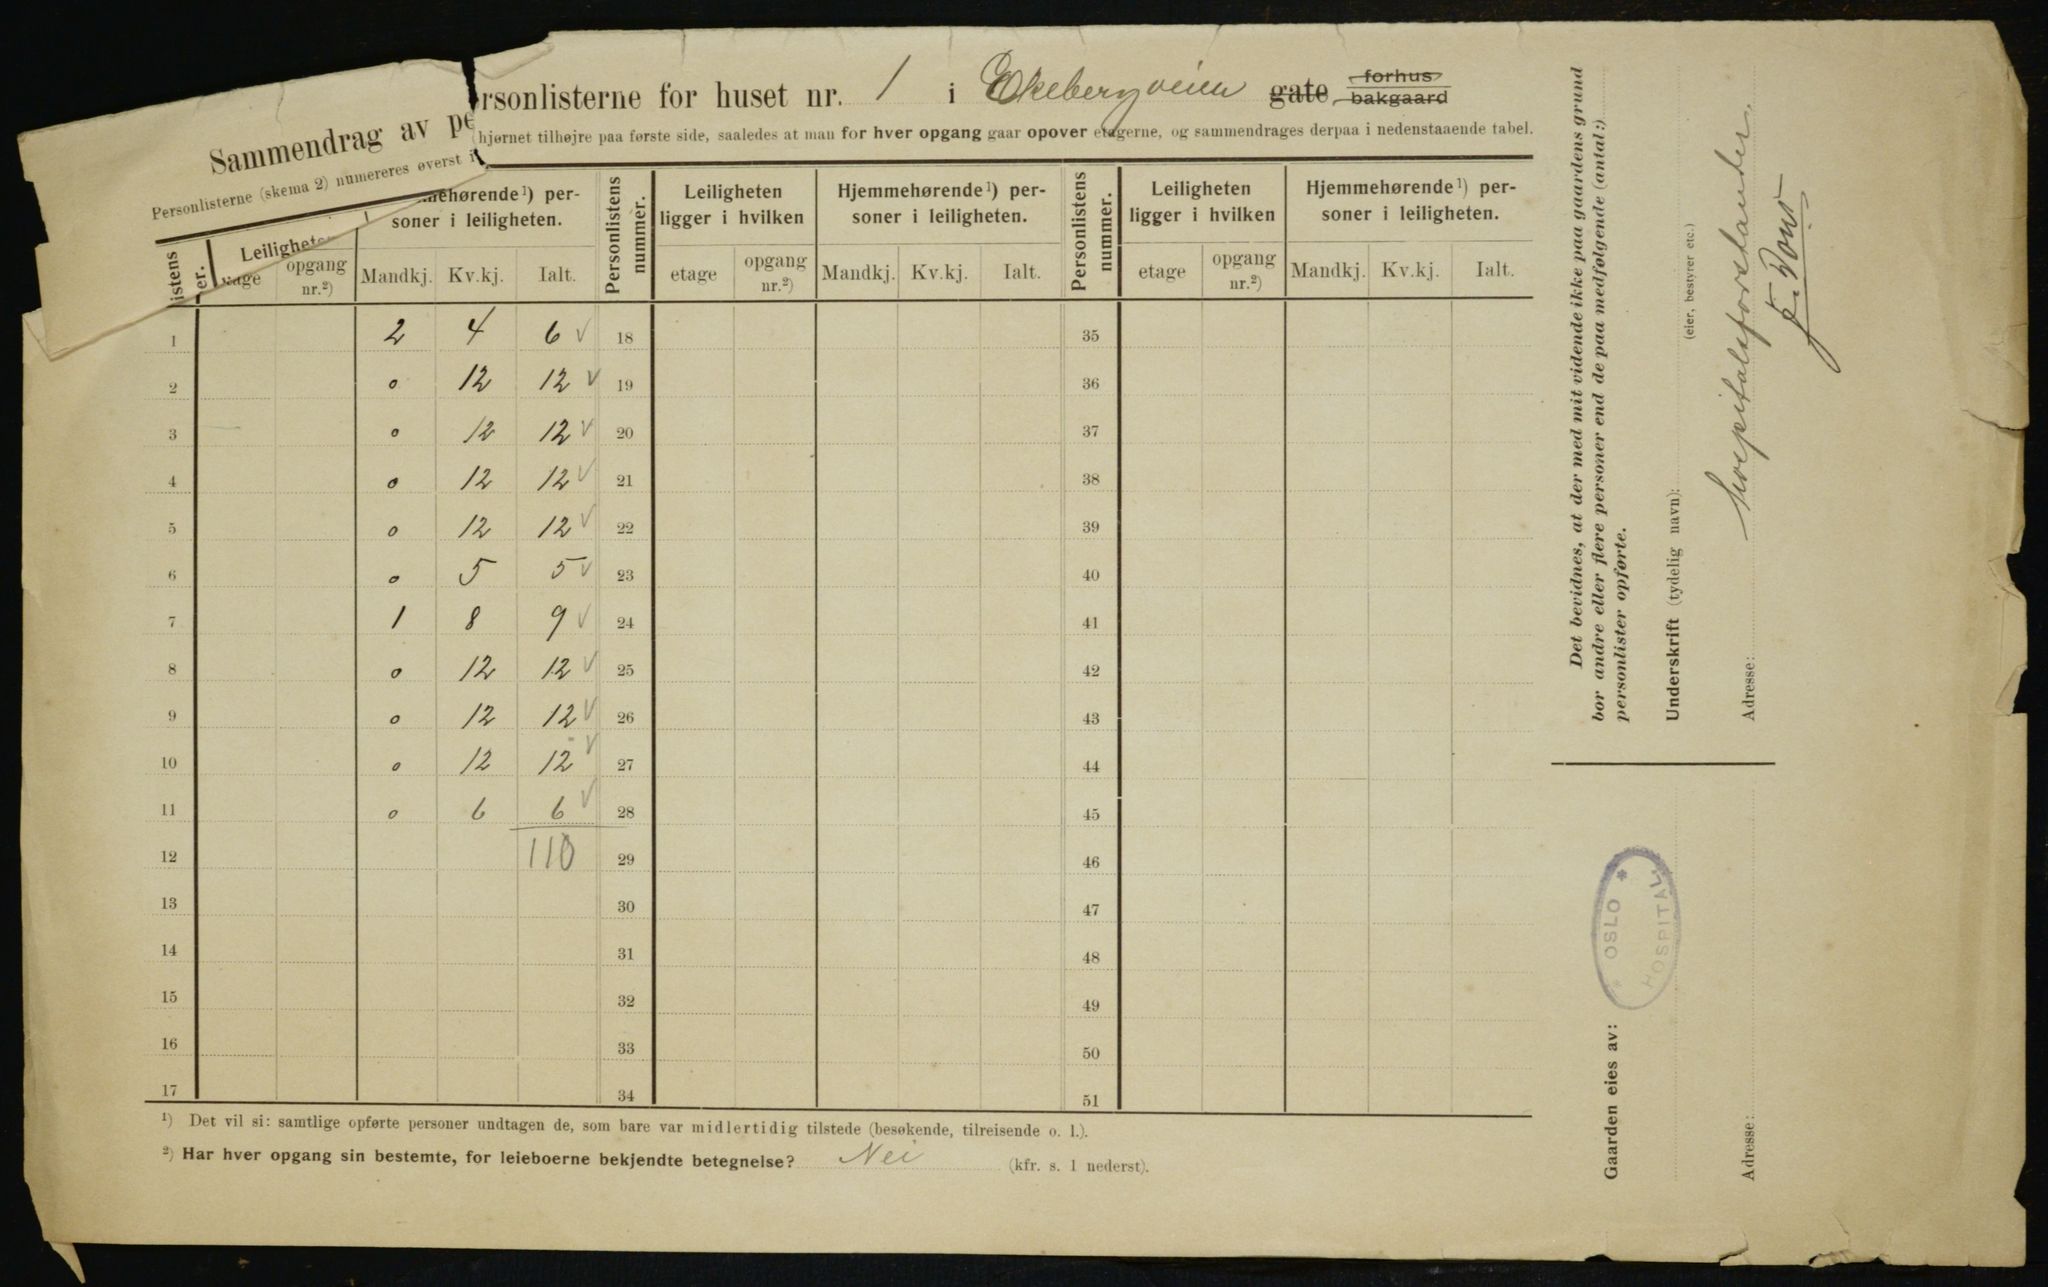 Sammendrag av personlisterne for huset nr. 1 i Ekebergveien gate forhus bakgaard
Personlisterne (skema 2) numereres øverst i hjørnet tilhøjre paa første side, saaledes at man for hver opgang gaar opover etagerne, og sammendrages derpaa i nedenstaaende tabel.
istens er. Leiligheten Hjemmehørende¹) personer i leiligheten. Personlistens nummer. Leiligheten ligger i hvilken Hjemmehørende¹) personer i leiligheten. Personlistens nummer. Leiligheten ligger i hvilken Hjemmehørende¹) personer i leiligheten.
etage opgang nr.²) Mandkj. Kv.kj. Ialt. etage opgang nr.²) Mandkj. Kv.kj. Ialt. etage opgang nr.²) Mandkj. Kv.kj. Ialt.
1 2 4 6 √ 18 35
2 0 12 12 √ 19 36
3 0 12 12 √ 20 37
4 0 12 12 √ 21 38
5 0 12 12 √ 22 39
6 0 5 5 √ 23 40
7 1 8 9 √ 24 41
8 0 12 12 √ 25 42
9 0 12 12 √ 26 43
10 0 12 12 √ 27 44
11 0 6 6 √ 28 45
12 110 29 46
13 30 47
14 31 48
15 32 49
16 33 50
17 34 51
¹) Det vil si: samtlige opførte personer undtagen de, som bare var midlertidig tilstede (besøkende, tilreisende o. l.).
²) Har hver opgang sin bestemte, for leieboerne bekjendte betegnelse? Nei (kfr. s. 1 nederst).
Det bevidnes, at der med mit vidende ikke paa gaardens grund
bor andre eller flere personer end de paa medfølgende (antal:)
personlister opførte.
Underskrift (tydelig navn):
(eier, bestyrer etc.)
Hospitalsforstander
Adresse:
Gaarden eies av:
OSLO HOSPITAL
Adresse: